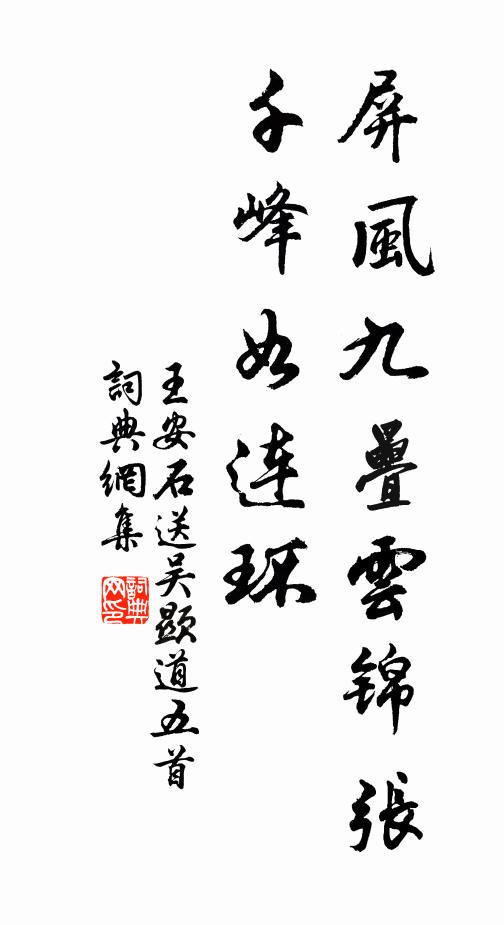 屏風九疊雲錦張
千峰如连环
王安石送吴顯道五首
詞典網集
詞典网印